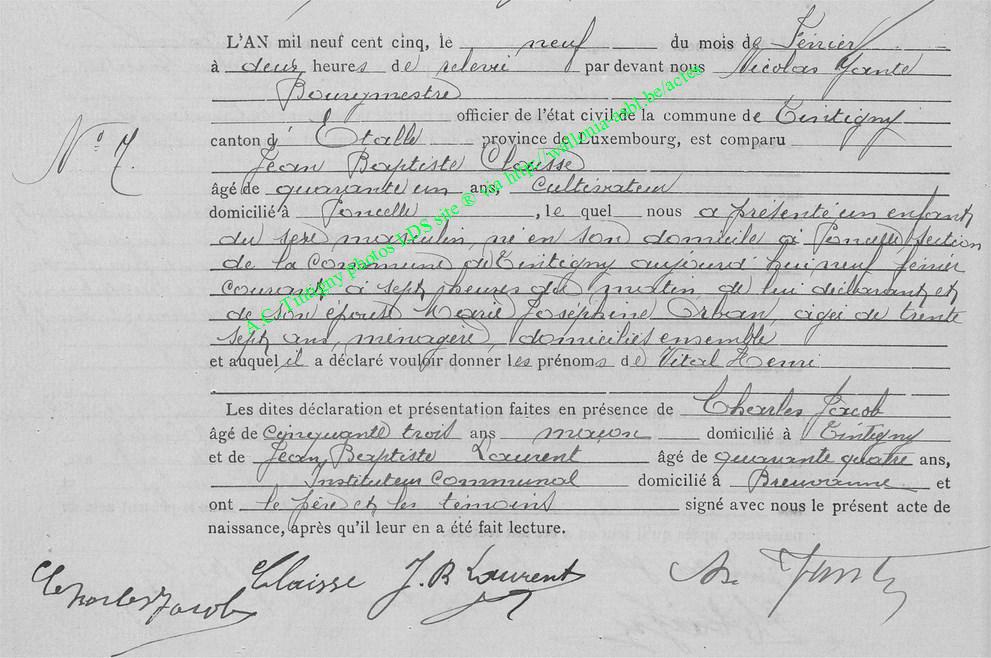 L'AN mil neuf cent cinq, le neuf du mois de Février
à deux heures de relevée par devant nous Nicolas Yante
Bourgmestre
officier de l'état civil de la commune de Tintigny
N° 7.
canton d' Etalle province de Luxembourg, est comparu
Jean Baptiste Claisse
âgé de quarante un ans, cultivateur
domicilié à Poncelle, le quel nous a présenté un enfant
du sexe masculin, né en son domicile à Poncelle section
de la Commune de Tintigny aujourd'hui neuf février
courant à sept heures du matin de lui déclarant et
de son épouse Marie Joséphine Orban, agée de trente
sept ans, ménagère, domiciliés ensemble
et auquel il a déclaré vouloir donner les prénoms de Vital Henri
Les dites déclaration et présentation faites en présence de Charles Jacob
âgé de cinquante trois ans maçon domicilié à Tintigny
et de Jean Baptiste Laurent âgé de quarante quatre ans,
Instituteur Communal domicilié à Breuvanne et
ont le père et les témoins signé avec nous le présent acte de
naissance, après qu'il leur en a été fait lecture.
Charles Jacob Claisse J.B Laurent Yante
A.C. Tintigny photos LDS site ® via http://wallonia-asbl.be/actes